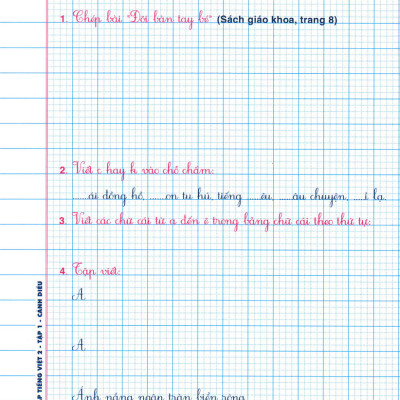 1. Chép bài "Đôi bàn tay bé" (Sách giáo khoa, trang 8)
2. Viết c hay k vào chỗ chấm:
......ái đồng hồ, ......on tu hú, tiếng .....êu, .....âu chuyện, .....ì lạ.
3. Viết các chữ cái từ a đến ê trong bảng chữ cái theo thứ tự:
4. Tập viết:
A
A
Ánh nắng ngập tràn biển rộng
P TIẾNG VIỆT 2 - TẬP 1 - CÁNH DIỀU